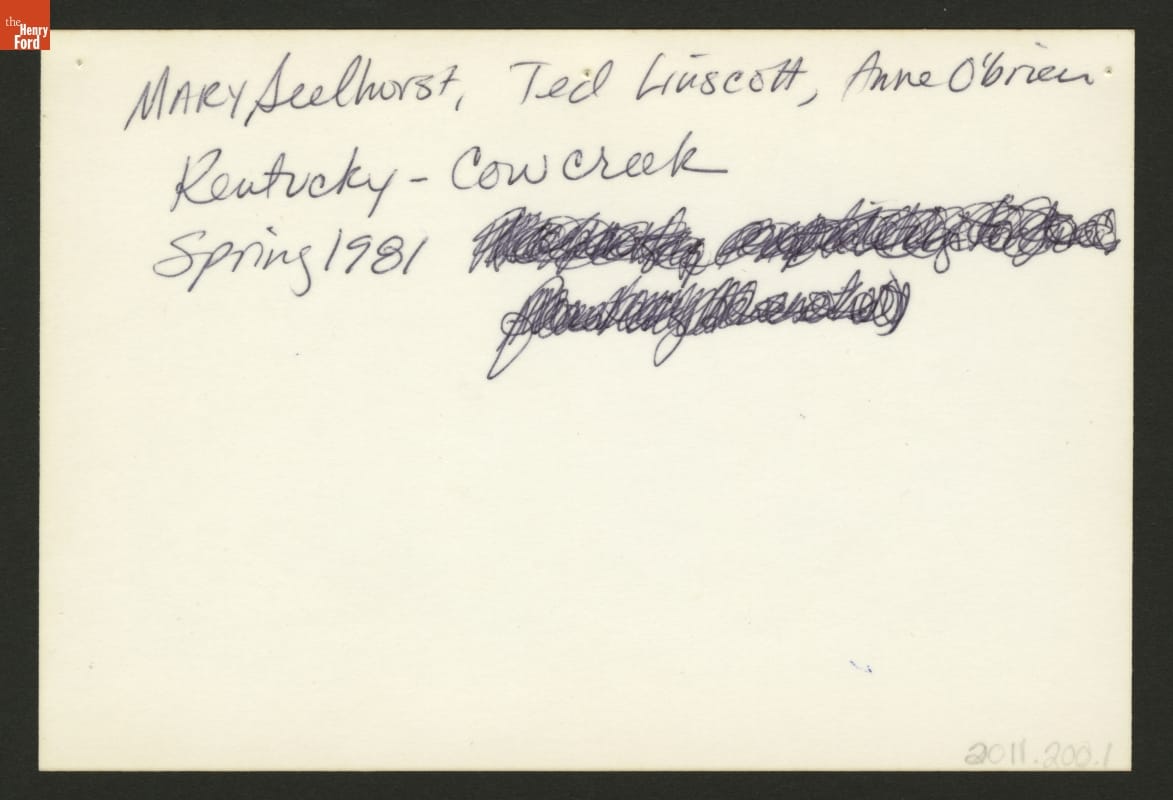 the
Henry
Ford
MARY Seelhorst, Ted Linscott, Anne O'brien
Kentucky - Cow Creek
Spring 1981
2011.200.1